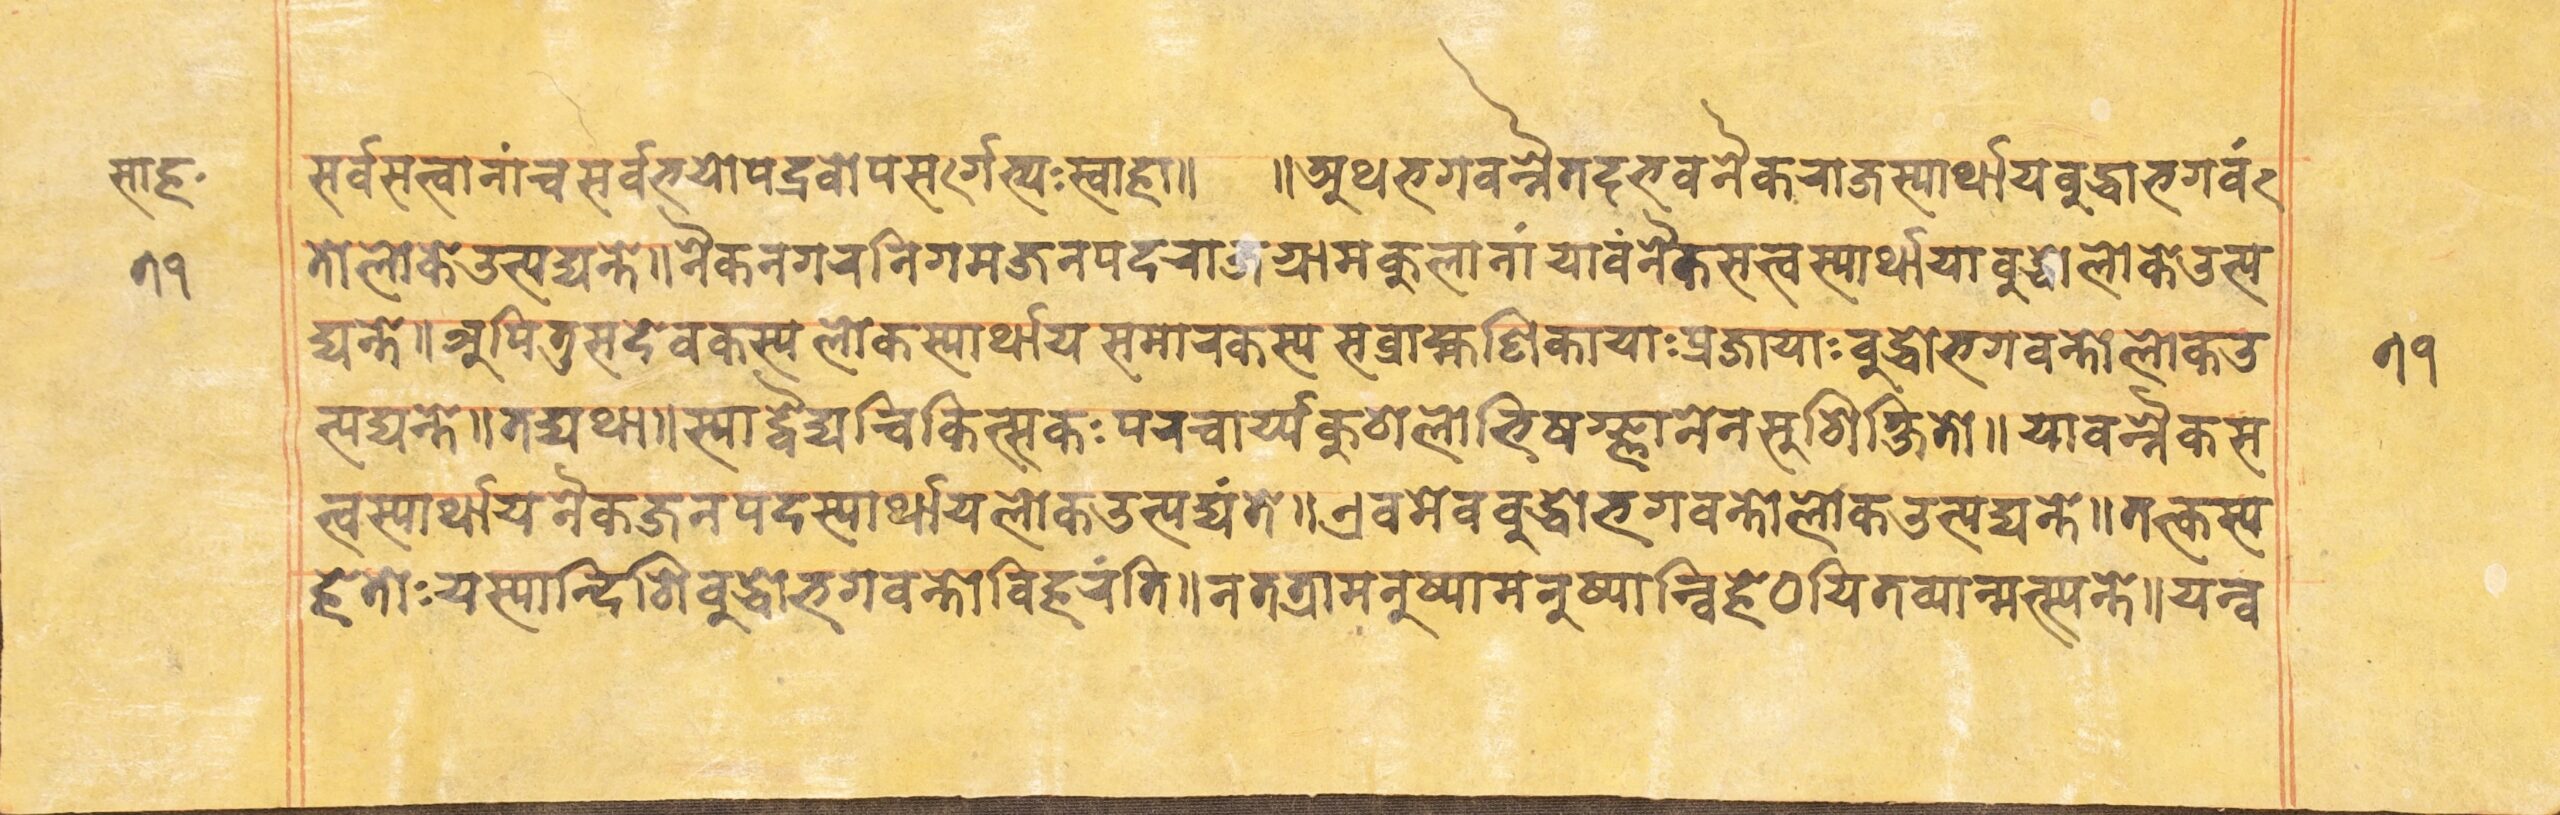 साहः
सर्वसत्त्वानांच सर्वभयोपद्रवोपसर्गेभ्यः स्वाहा॥ ॥अथ भगवन्नैतदभवनैकराजस्यार्थाय बुद्धा भगवं
७१
तो लोके उत्पद्यन्ते॥ नैकनगरनिगमजनपदराजग्रामकुलानां यावंनैकसत्त्वस्यार्थाया बुद्धो लोके उत्प
द्यन्ते॥ अपितु सदेवकस्य लोकस्यार्थाय समारकस्य सब्राह्मणिकायाः प्रजायाः बुद्धो भगवन्तो लोक उ
७१
त्पद्यन्ते॥ तद्यथा॥ स्याद्वैद्यचिकित्सकः परचार्य्यकुशलो भिषग्ज्ञानेन सुशिक्षितो॥ यावन्नैकस
त्त्वस्यार्थाय नैकजनपदस्यार्थाय लोक उत्पद्यंते॥ एवमेव बुद्धो भगवन्तो लोक उत्पद्यन्ते॥ तत्कस्य
हेतोः यस्यान्दिशि बुद्धो भगवन्तो विहरंति॥ न तत्रामनुष्या मनुष्यान्विहेठयितव्यान्मत्स्यन्ते॥ यन्व